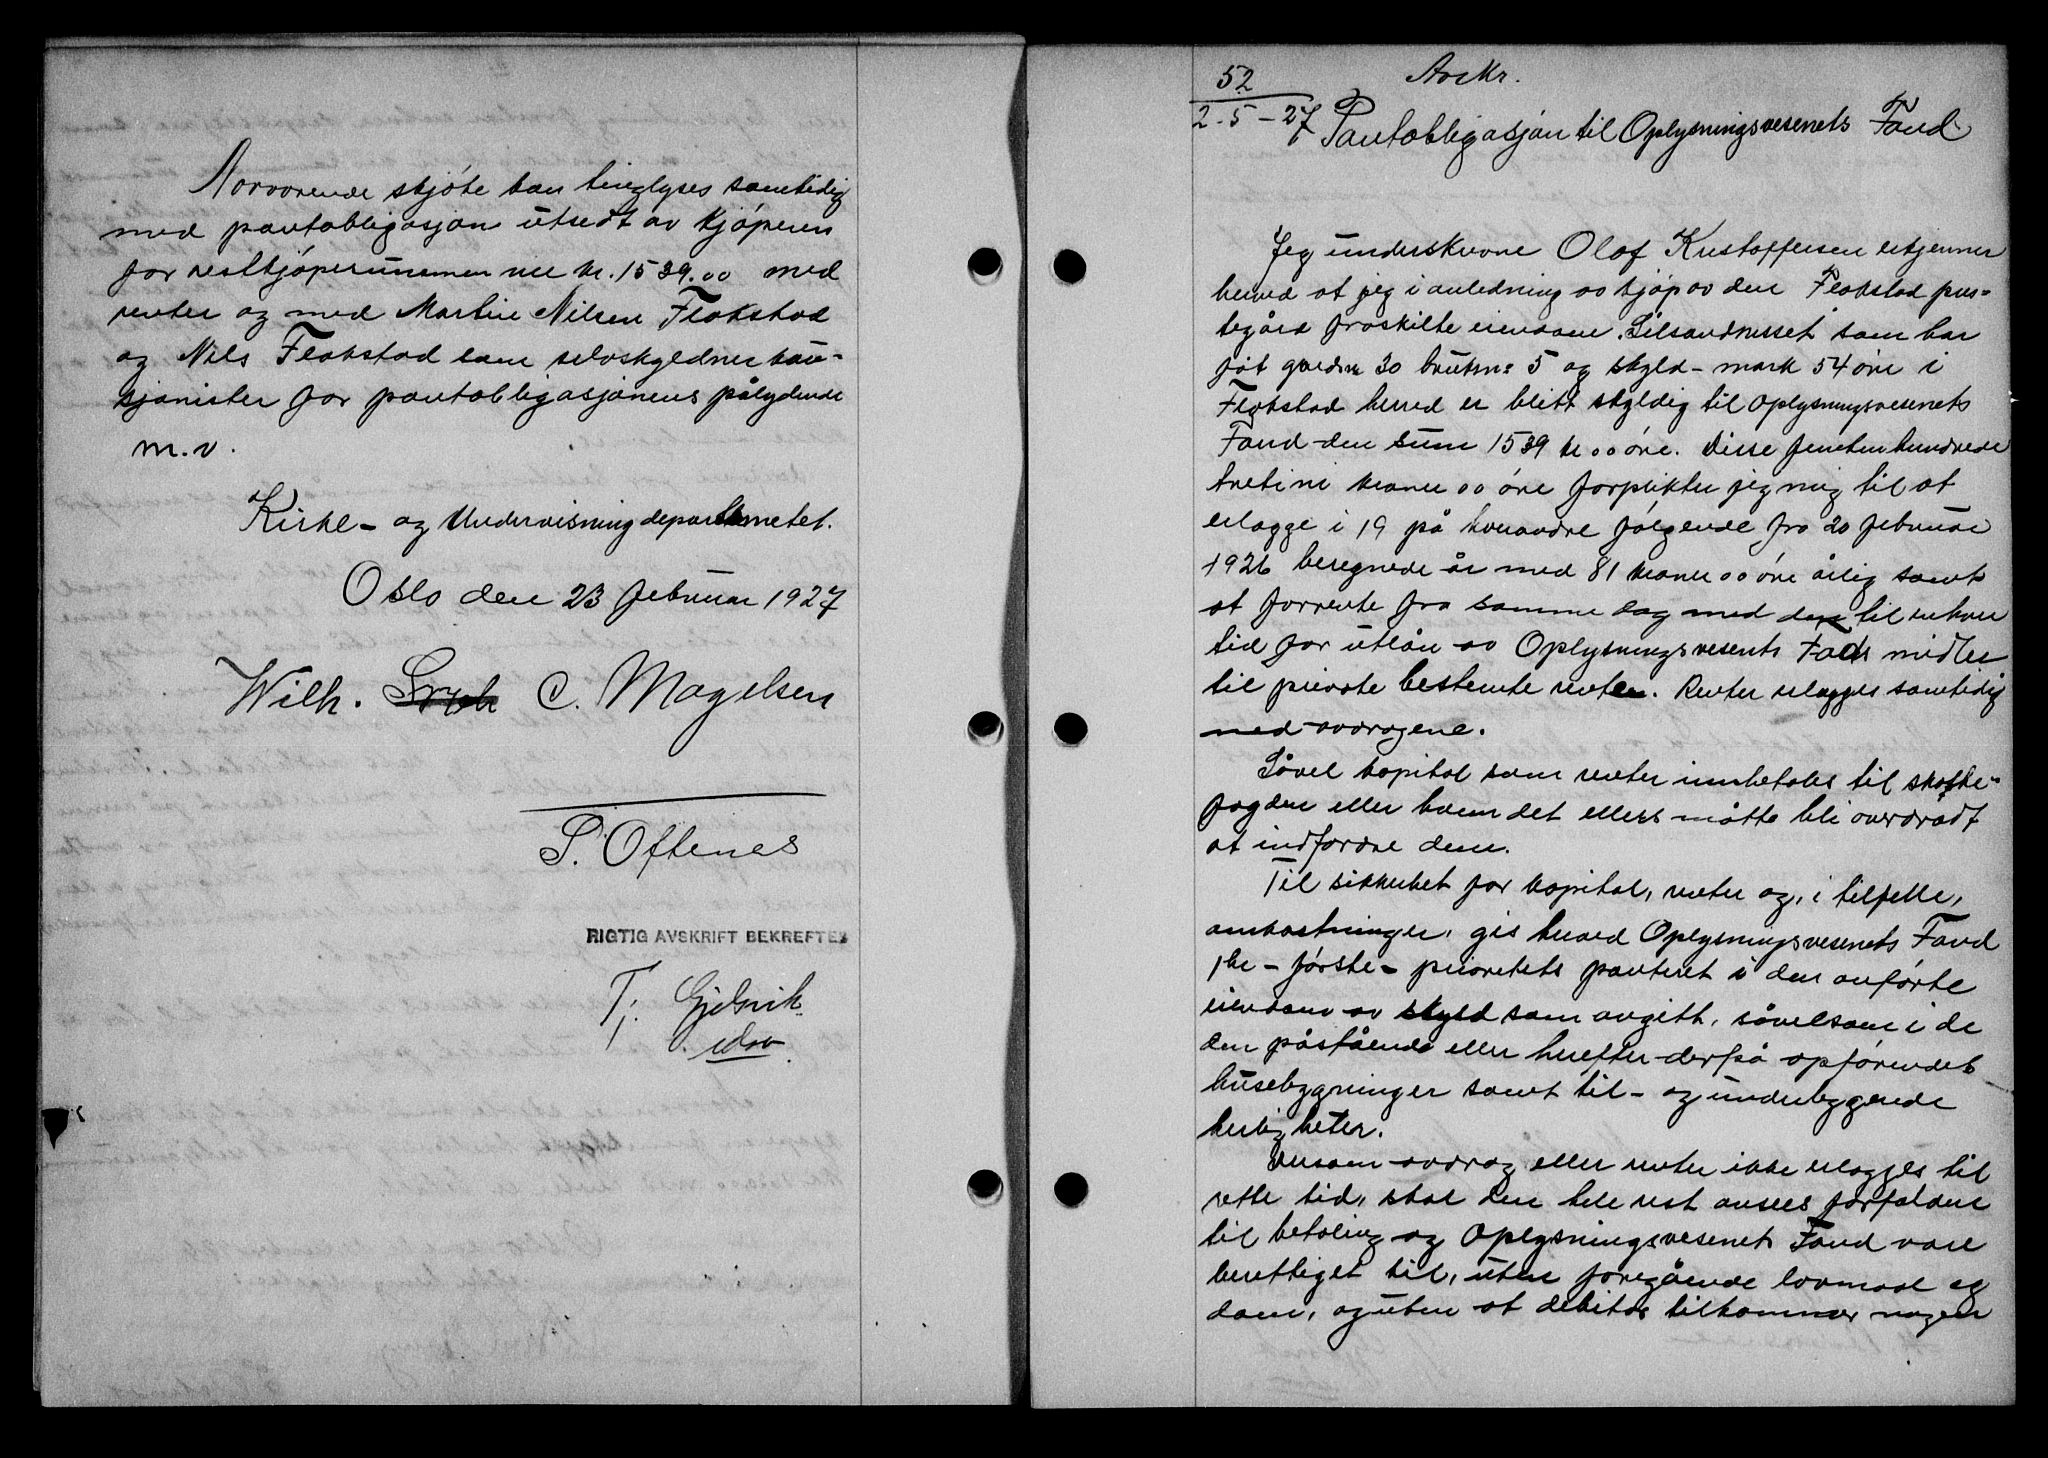 Nærværende skjøte kan tinglyses samtidig
med pantobligasjon utsedt av kjøperen
for restkjøpesummen nu kr. 1539.00 med
renter og med Martin Nilsen Flakstad
og Nils Flakstad som selvskyldnerkau-
sjonister for pantobligasjonens pålydende
m.v.
Kirke- og Undervisningdepartemetet.
Oslo den 23 februar 1927
Wilh. C. Magelsen
P. Oftenes
RIGTIG AVSKRIFT BEKREFTES
T. Gjelsvik
edsv.
52 Avskr.
2-5-27 Pantobligasjon til Oplysningsvesenets Fond
Jeg underskrevne Olaf Kristoffersen erkjenner
herved at jeg i anledning av kjøp av den Flakstad pres-
tegård fraskilte eiendom, Lilsandnesset som har
fåt gardsnr 30 bruksnr 5 og skyld-mark 54 øre i
Flakstad herred er blitt skyldig til Oplysningsvesenets
Fond den sum 1539 kr 00 øre. Disse femtenhundrede
tretini kroner 00 øre forplikter jeg mig til at
erlægge i 19 på hverandre følgende fra 20 februar
1926 beregnede år med 81 kroner 00 øre årlig samt
at forrente fra samme dag med den til enhver
tid for utlån av Oplysningsvesents Fods midler
til private bestemte renter. Renter erlægges samtidig
med avdragene.
Såvel kapital som renter innbetales til skatte-
fogden eller hvem det ellers måtte bli overdradt
at indfordre dem.
Til sikkerhet for kapital, renter og, i tilfelle,
omkostninger, gis herved Oplysningsvesenets Fond
1ste - første - prioritets panteret i den anførte
eiendom av skyld som avgitt, såvelsom i de
den påstående eller herefter derpå opførendes
husebygninger samt til- og underliggende
herligheter.
Dersom avdrag eller renter ikke erlægges til
rette tid, skal den hele rest ansees forfalden
til betaling og Oplysningsvesenets Fond være
berettiget til, uten foregående lovmaal og
dom, og uten at debitor tilkommer nogen